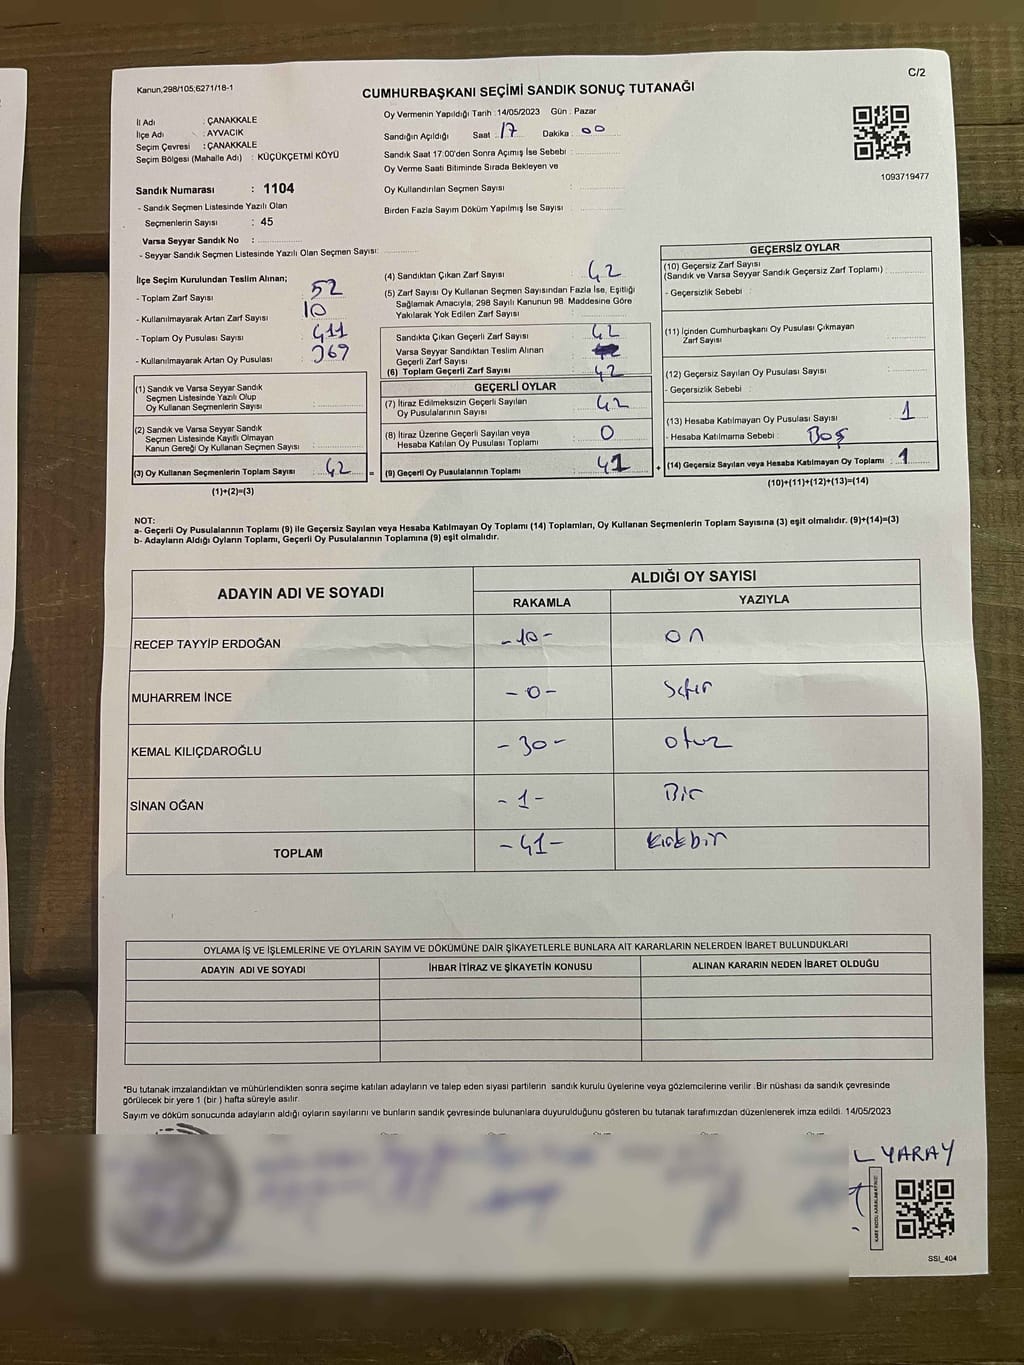 C/2
Kanun,298/105;6271/18-1
CUMHURBAŞKANI SEÇİMİ SANDIK SONUÇ TUTANAĞI
İl Adı : ÇANAKKALE
İlçe Adı : AYVACIK
Seçim Çevresi : ÇANAKKALE
Seçim Bölgesi (Mahalle Adı) : KÜÇÜKÇETMİ KÖYÜ
Oy Vermenin Yapıldığı Tarih :14/05/2023 Gün : Pazar
Sandığın Açıldığı Saat :17 Dakika : 00
Sandık Saat 17:00'den Sonra Açımış İse Sebebi :
Oy Verme Saati Bitiminde Sırada Bekleyen ve
Oy Kullandırılan Seçmen Sayısı :
Birden Fazla Sayım Döküm Yapılmış İse Sayısı :
1093719477
Sandık Numarası : 1104
- Sandık Seçmen Listesinde Yazılı Olan
Seçmenlerin Sayısı : 45
Varsa Seyyar Sandık No :
- Seyyar Sandık Seçmen Listesinde Yazılı Olan Seçmen Sayısı:
İlçe Seçim Kurulundan Teslim Alınan;
- Toplam Zarf Sayısı 52
- Kullanılmayarak Artan Zarf Sayısı 10
- Toplam Oy Pusulası Sayısı : 411
- Kullanılmayarak Artan Oy Pusulası 369
(1) Sandık ve Varsa Seyyar Sandık
Seçmen Listesinde Yazılı Olup
Oy Kullanan Seçmenlerin Sayısı :
(2) Sandık ve Varsa Seyyar Sandık
Seçmen Listesinde Kayıtlı Olmayan
Kanun Gereği Oy Kullanan Seçmen Sayısı :
(3) Oy Kullanan Seçmenlerin Toplam Sayısı : 42 =
(1)+(2)=(3)
(4) Sandıktan Çıkan Zarf Sayısı : 42
(5) Zarf Sayısı Oy Kullanan Seçmen Sayısından Fazla İse, Eşitliği
Sağlamak Amacıyla; 298 Sayılı Kanunun 98. Maddesine Göre
Yakılarak Yok Edilen Zarf Sayısı :
Sandıkta Çıkan Geçerli Zarf Sayısı : 42
Varsa Seyyar Sandıktan Teslim Alınan
Geçerli Zarf Sayısı
(6) Toplam Geçerli Zarf Sayısı : 42
GEÇERLİ OYLAR
(7) İtiraz Edilmeksizin Geçerli Sayılan
Oy Pusulalarının Sayısı : 42
(8) İtiraz Üzerine Geçerli Sayılan veya
Hesaba Katılan Oy Pusulası Toplamı : 0
(9) Geçerli Oy Pusulalarının Toplamı : 41 +
GEÇERSİZ OYLAR
(10) Geçersiz Zarf Sayısı
(Sandık ve Varsa Seyyar Sandık Geçersiz Zarf Toplamı) :
- Geçersizlik Sebebi :
(11) İçinden Cumhurbaşkanı Oy Pusulası Çıkmayan
Zarf Sayısı :
(12) Geçersiz Sayılan Oy Pusulası Sayısı :
- Geçersizlik Sebebi :
(13) Hesaba Katılmayan Oy Pusulası Sayısı : 1
- Hesaba Katılmama Sebebi : Boş
(14) Geçersiz Sayılan veya Hesaba Katılmayan Oy Toplamı : 1
(10)+(11)+(12)+(13)=(14)
NOT:
a- Geçerli Oy Pusulalarının Toplamı (9) ile Geçersiz Sayılan veya Hesaba Katılmayan Oy Toplamı (14) Toplamları, Oy Kullanan Seçmenlerin Toplam Sayısına (3) eşit olmalıdır. (9)+(14)=(3)
b- Adayların Aldığı Oyların Toplamı, Geçerli Oy Pusulalarının Toplamına (9) eşit olmalıdır.
ADAYIN ADI VE SOYADI
ALDIĞI OY SAYISI
RAKAMLA YAZIYLA
RECEP TAYYİP ERDOĞAN -10- on
MUHARREM İNCE -0- Sıfır
KEMAL KILIÇDAROĞLU -30- otuz
SİNAN OĞAN -1- Bir
TOPLAM -41- kırkbir
OYLAMA İŞ VE İŞLEMLERİNE VE OYLARIN SAYIM VE DÖKÜMÜNE DAİR ŞİKAYETLERLE BUNLARA AİT KARARLARIN NELERDEN İBARET BULUNDUKLARI
ADAYIN ADI VE SOYADI İHBAR İTİRAZ VE ŞİKAYETİN KONUSU ALINAN KARARIN NEDEN İBARET OLDUĞU
*Bu tutanak imzalandıktan ve mühürlendikten sonra seçime katılan adayların ve talep eden siyasi partilerin sandık kurulu üyelerine veya gözlemcilerine verilir .Bir nüshası da sandık çevresinde
görülecek bir yere 1 (bir ) hafta süreyle asılır.
Sayım ve döküm sonucunda adayların aldığı oyların sayılarını ve bunların sandık çevresinde bulunanlara duyurulduğunu gösteren bu tutanak tarafımızdan düzenlenerek imza edildi. 14/05/2023
L YARAY
KARE KODU KARALAMAYINIZ
SSI_404